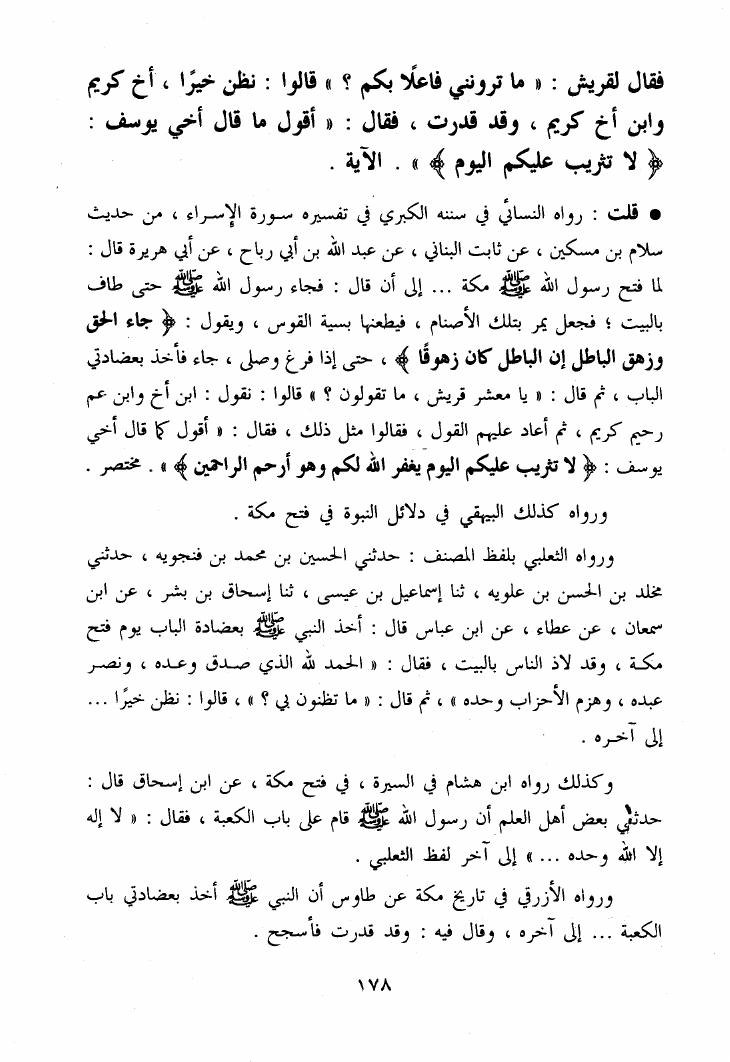 فقال لقريش : « ما ترونني فاعلًا بكم ؟ » قالوا : نظن خيرًا ، أخ كريم
وابن أخ كريم ، وقد قدرت ، فقال : « أقول ما قال أخي يوسف :
﴿ لا تثريب عليكم اليوم ﴾ » . الآية .
● قلت : رواه النسائي في سننه الكبري في تفسيره سورة الإسراء ، من حديث
سلام بن مسكين ، عن ثابت البناني ، عن عبد الله بن أبي رباح ، عن أبي هريرة قال :
لما فتح رسول الله ﷺ مكة ... إلى أن قال : فجاء رسول الله ﷺ حتى طاف
بالبيت ؛ فجعل يمر بتلك الأصنام ، فيطعنها بسية القوس ، ويقول : ﴿ جاء الحق
وزهق الباطل إن الباطل كان زهوقًا ﴾ ، حتى إذا فرغ وصلى ، جاء فأخذ بعضادتي
الباب ، ثم قال : « يا معشر قريش ، ما تقولون ؟ » قالوا : نقول : ابن أخ وابن عم
رحيم كريم ، ثم أعاد عليهم القول ، فقالوا مثل ذلك ، فقال : « أقول كما قال أخي
يوسف : ﴿ لا تثريب عليكم اليوم يغفر الله لكم وهو أرحم الراحمين ﴾ » . مختصر .
ورواه كذلك البيهقي في دلائل النبوة في فتح مكة .
ورواه الثعلبي بلفظ المصنف : حدثني الحسين بن محمد بن فنجويه ، حدثني
مخلد بن الحسن بن علويه ، ثنا إسماعيل بن عيسى ، ثنا إسحاق بن بشر ، عن ابن
سمعان ، عن عطاء ، عن ابن عباس قال : أخذ النبي ﷺ بعضادة الباب يوم فتح
مكة ، وقد لاذ الناس بالبيت ، فقال : « الحمد لله الذي صدق وعده ، ونصر
عبده ، وهزم الأحزاب وحده » ، ثم قال : « ما تظنون بي ؟ » ، قالوا : نظن خيرًا ...
إلى آخره .
وكذلك رواه ابن هشام في السيرة ، في فتح مكة ، عن ابن إسحاق قال :
حدثني بعض أهل العلم أن رسول الله ﷺ قام على باب الكعبة ، فقال : « لا إله
إلا الله وحده ... » إلى آخر لفظ الثعلبي .
ورواه الأزرقي في تاريخ مكة عن طاوس أن النبي ﷺ أخذ بعضادتي باب
الكعبة ... إلى آخره ، وقال فيه : وقد قدرت فأسجح .
١٧٨